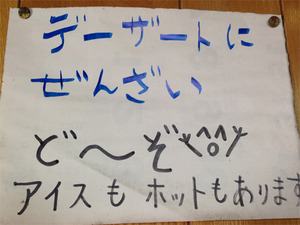 デーザートに
ぜんざい
ど〜ぞ\(^o^)/
アイスもホットもあります